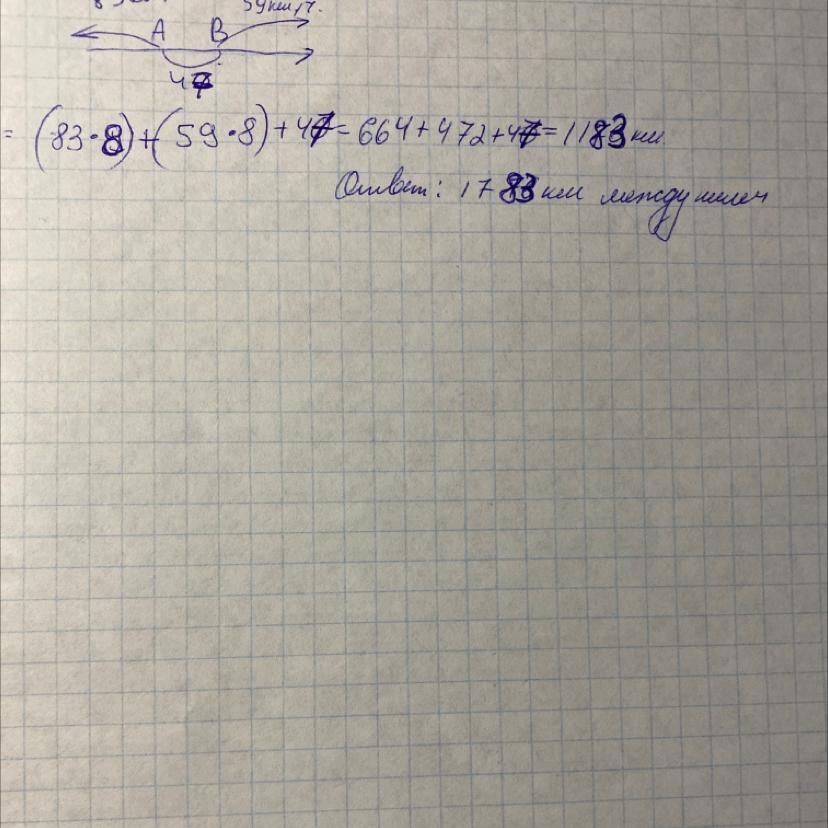 59 км/ч.
A B
47
= (83·8)+(59·8)+47=664+472+47=1183 км
Ответ: 1783 км между ними